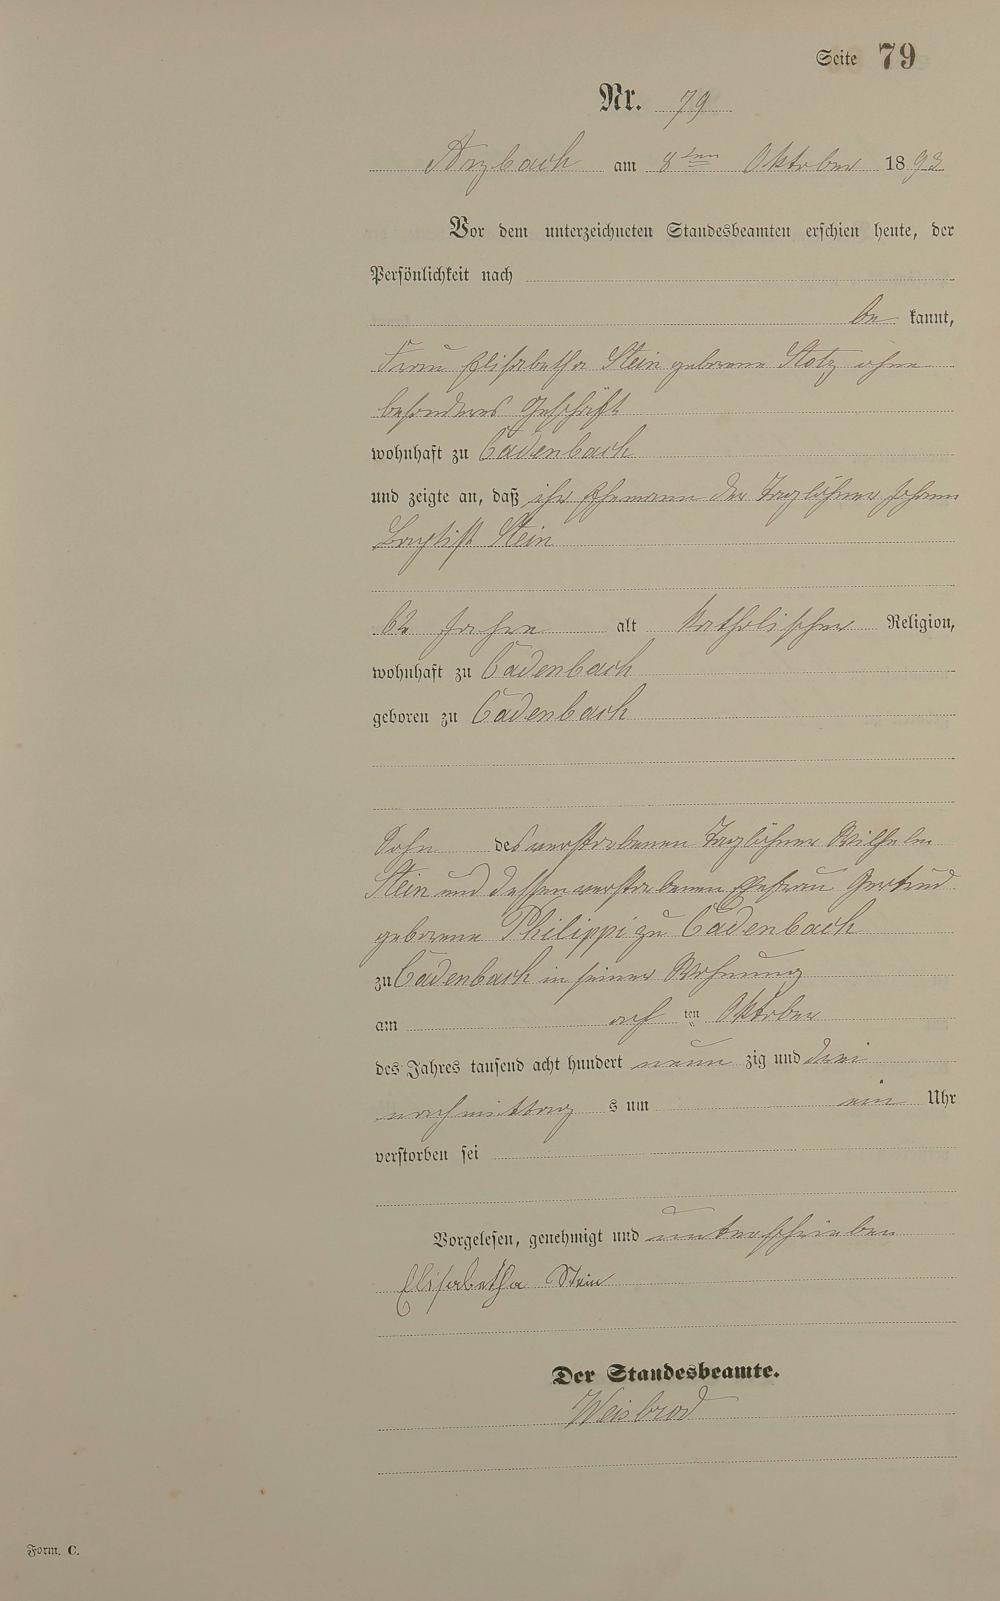 Seite 79
Nr. 79
Arzbach am 8ten Oktober 1893
Vor dem unterzeichneten Standesbeamten erschien heute, der
Persönlichkeit nach
be kannt,
Frau Elisabetha Stein geborene Stotz ohne
besonderes Geschäft
wohnhaft zu Cadenbach
und zeigte an, daß ihr Ehemann der Taglöhner Johann
Baptist Stein
62 Jahre alt katholischer Religion,
wohnhaft zu Cadenbach
geboren zu Cadenbach
Sohn des verstorbenen Taglöhner Wilhelm
Stein und dessen verstorbenen Ehefrau Gertrud
geborene Philippi zu Cadenbach
zu Cadenbach in seiner Wohnung
am acht ten Oktober
des Jahres tausend acht hundert neun zig und drei
nachmittag s um ein Uhr
verstorben sei
Vorgelesen, genehmigt und unterschrieben
Elisabetha Stein
Der Standesbeamte.
Weisbrod
Form. C.